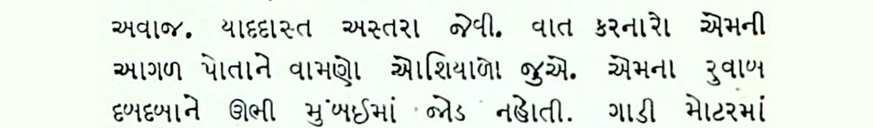 અવાજ. યાદદાસ્ત અસ્તરા જેવી. વાત કરનારો એમની
આગળ પોતાને વામણો ઓશિયાળો જુએ. એમના રુવાબ
દબદબાને ઊભી મુંબઈમાં જોડ નહોતી. ગાડી મોટરમાં